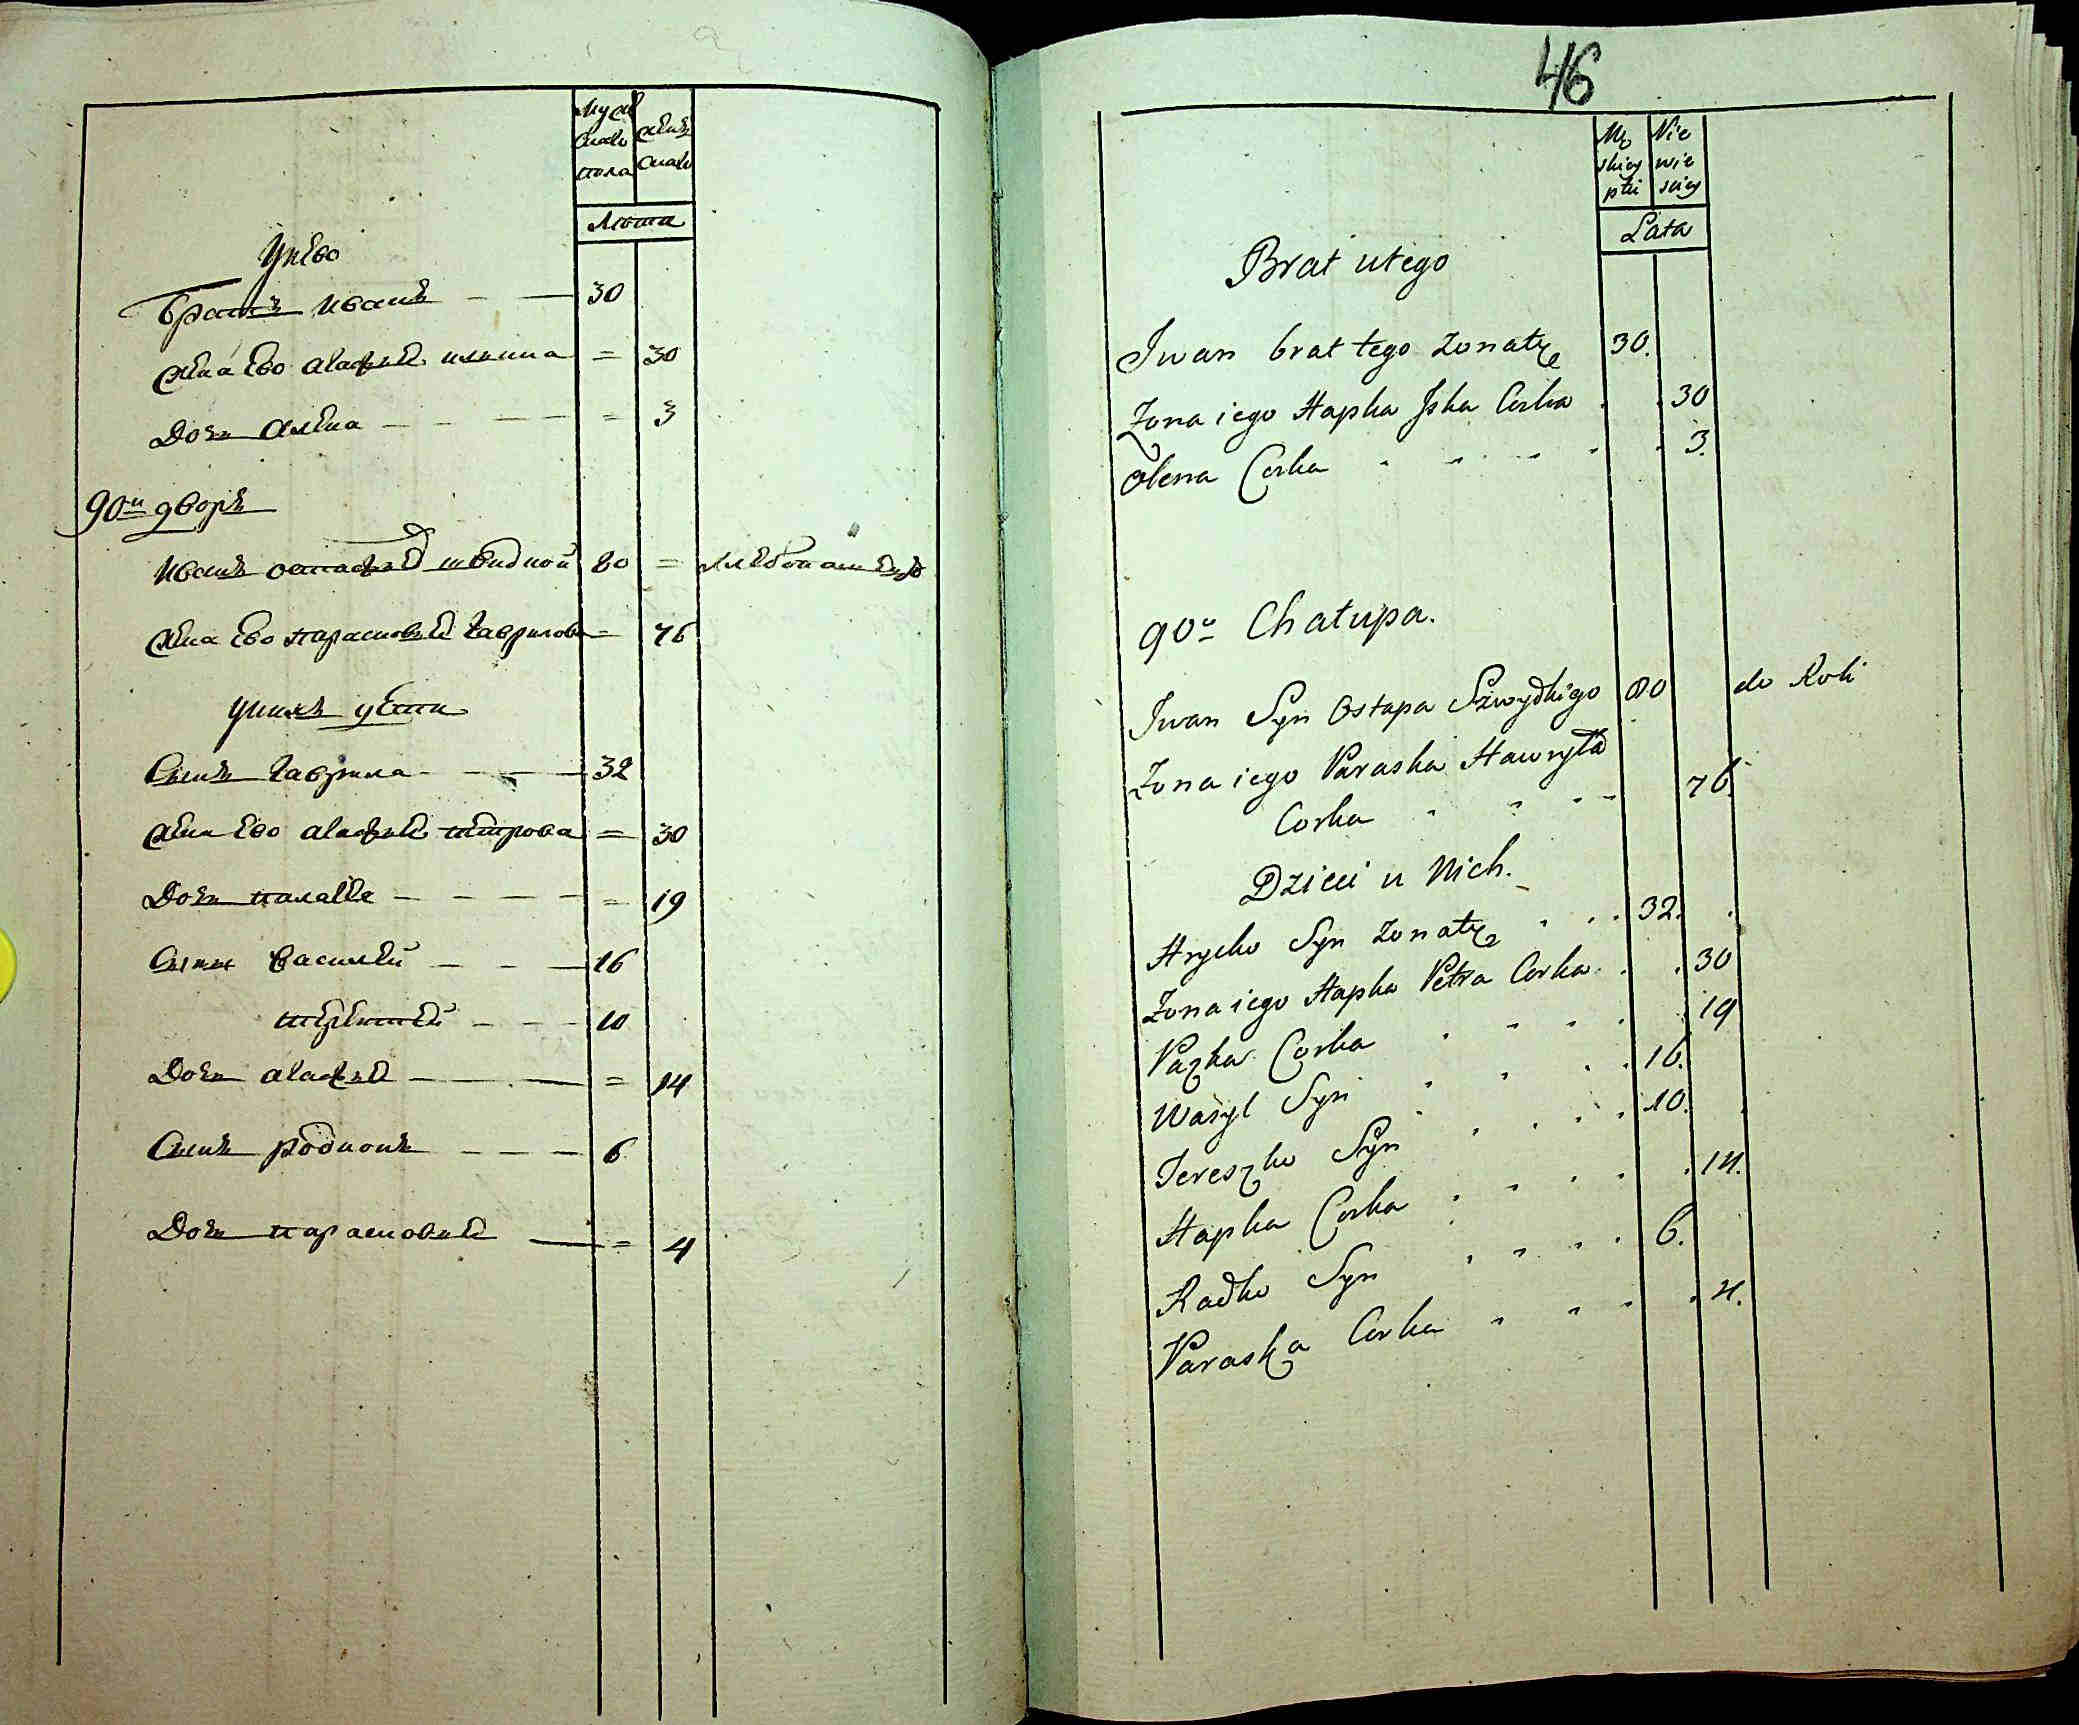 Мужеска пола
Женска
Лета
У него
Братъ Иванъ — — 30
Жена ево Агафия = 30
Дочь Алена — — — = 3
90й дворъ
Иванъ Остафиевъ Швидкой 80 =
Жена ево Парасковия Гаврилова = 76
у нихъ дети
Сынъ Гаврила — — — 32
Жена ево Агафия Петрова = 30
Дочь Палагея — — — = 19
Сыны Василей — — — 16
Терентей — — — 10
Дочь Агафия — — = 14
Сынъ Родионъ — — — 6
Дочь Парасковия — = 4
46
Mę skiey płci
Nie wie sciey
Lata
Brat u tego
Iwan brat tego zonaty 30.
Zona iego Hapka Jska Corka . . 30
Olena Corka . . . . . . 3.
90a Chatupa.
Iwan Syn Ostapa Szwydkigo 80 do Roli
Zona iego Paraska Hawryła
Corka . . . . 76.
Dzieci u Nich.
Hrycko Syn zonaty . . . 32. .
Zona iego Hapka Petra Corka . . . 30
Pazka Corka . . . . . 19
Wasyl Syn . . . . 16.
Tereszko Syn . . . . 10.
Hapka Corka . . . . . 14.
Radko Syn . . . . 6.
Paraska Corka . . . . 4.